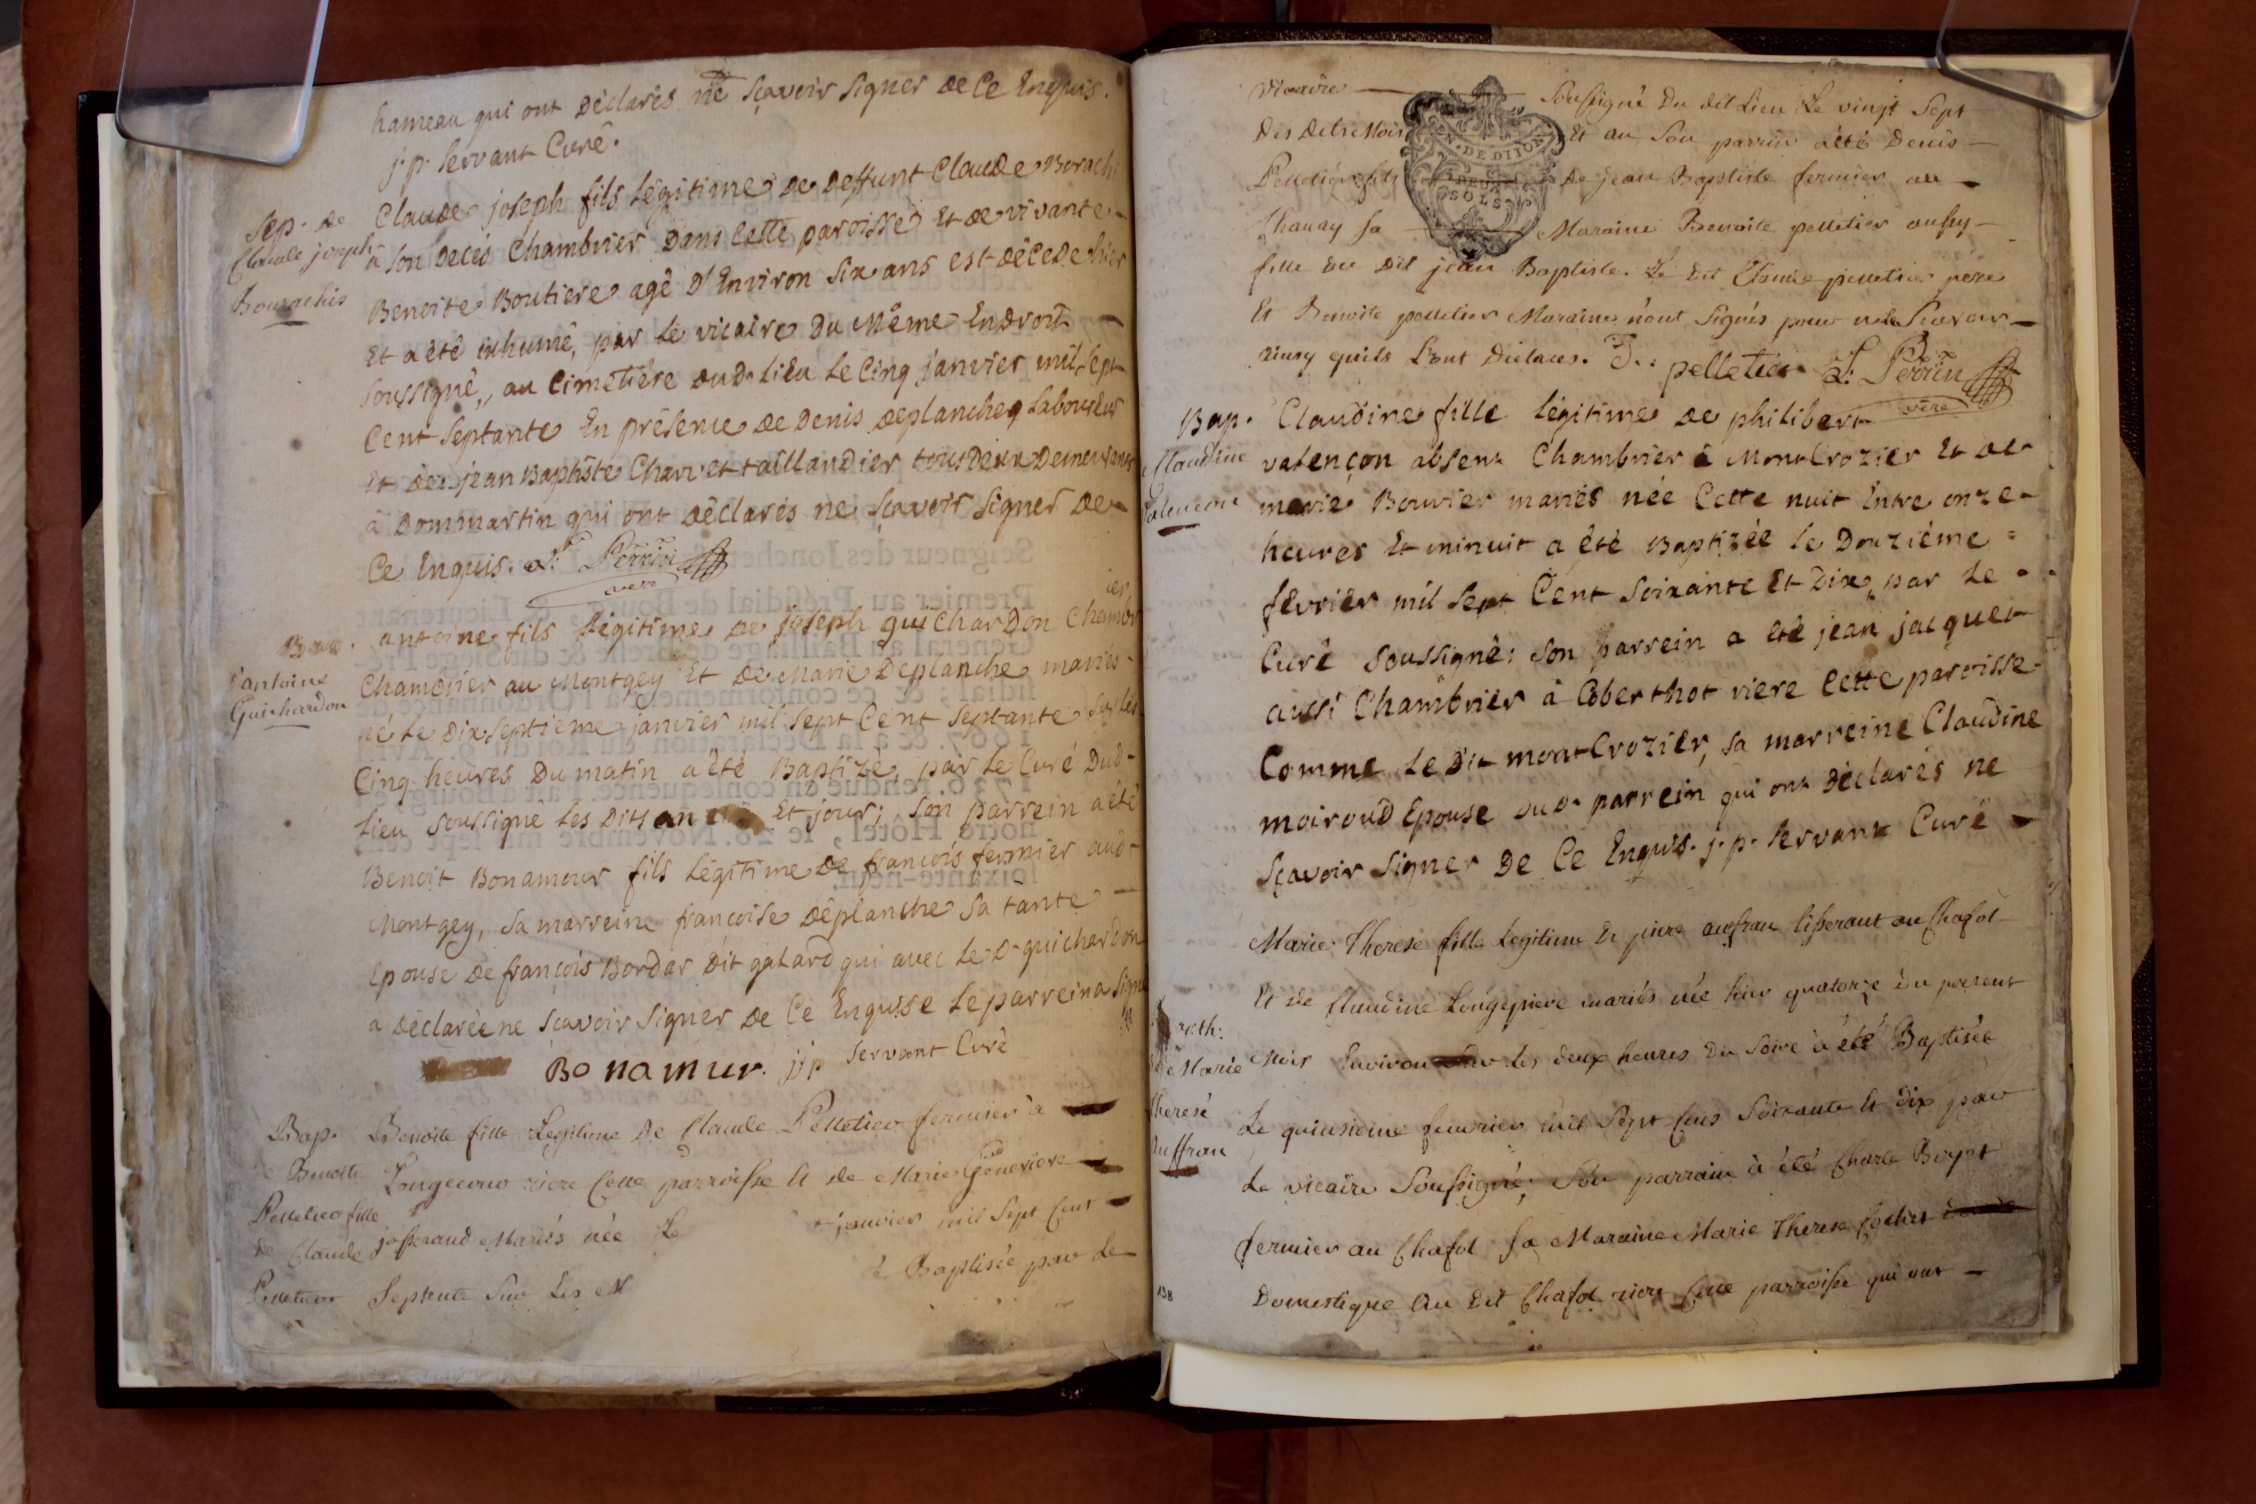 hameau qui ont Déclarés ne sçavoir signer de Ce Enquis.
j. p. servant Curé.
Sep. de
Claude joseph
Bourachis
Claude joseph fils légitime de deffunt Claude Borachi
à son decés Chambrier dans Cette paroisse Et de vivante
Benoite Boutiere agé d'Environ six ans est décedé hier
Et a été inhumé, par le vicaire du Même Endroit
soussigné, au Cimetiére dud. lieu le Cinq janvier mil sept
Cent septante En présence de denis deplanche laboureur
Et de jean Baptiste Charvet taillandier tous deux demeurants
à dommartin qui ont déclarés ne sçavoir signer de
Ce Enquis. Perrin
vere
Bap.
d'antoine
Guichardon
antoine fils légitime de joseph guichardon Chambrier
Chambrier au Montgey Et de Marie deplanche mariés
né le dix septieme janvier mil sept Cent septante sur les
Cinq heures du matin a été Baptizé, par le Curé dud.
lieu soussigné les dits an Et jour; son parrein a été
Benoit Bonamour fils légitime de francois fermier aud.
Montgey, sa marreine francoise déplanche sa tante
Epouse de francois Bordar dit galard qui avec le d. guichardon
a déclarée ne sçavoir signer de Ce Enquise le parrein a signé
Bonamur. j. p. servant Curé
Bap.
de Benoite
Pelletier fille
de Claude
Pelletier
Benoite fille Legitime De Claude Pelletier fermier a
riere Cette parroisse Et de Marie Genevieve
josserand Mariés née Le janvier mil sept Cent
septente sur Les
Baptisée par Le
vicaire soussigné du dit Lieu Le vingt sept
Des dits Mois Et an son parrin a été Denis
Pelletier fils de jean Baptiste fermier au
Thanay sa Maraine Benoite pelletier aussy
fille du dit jean Baptiste. Le dit Claude pelletier père
Et Benoite pelletier Maraine n'ont signés pour ne le scavoir
ainsy quils L'ont declares. D.. pelletier Perrin
vere
Bap.
Claudine
valençon
Claudine fille légitime de philibert
valençon absent Chambrier à MontCrozier Et de
marie Bouvier mariés née Cette nuit Entre onze
heures Et minuit a été Baptizée le douziéme
fevrier mil sept Cent soixante Et dix, par le
Curé soussigné: son parrein a été jean jacquet
aussi Chambrier à Coberthot riere Cette paroisse
Comme le dit montCrozier, sa marreine Claudine
moiroud Epouse dud. parrein qui ont déclarés ne
sçavoir signer de Ce Enquis. j. p. servant Curé
de Marie
therese
auffran
Marie Therese fille Legitime de pierre auffran tisserant au Chafol
Et de Claudine Longepierre mariés née hier quatorze du present
Mois Environ les deux heures Du soire à été Baptisée
Le quinsieme fevrier mil sept Cens soixante Et dix par
Le vicaire soussigné; son parrain à été Charle Boyat
fermier au Chafol sa Maraine Marie Therese
Domestique au dit Chafol riere Cette parroisse qui ont
138
DE DIJON
DEUX
SOLS